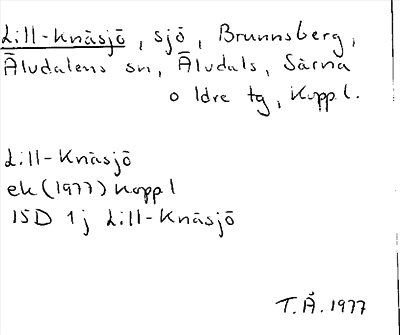 Lill-Knäsjö, sjö, Brunnsberg,
Älvdalens sn, Älvdals, Särna
o Idre tg, Koppl.
Lill-Knäsjö
ek (1977) Koppl
15D 1j Lill-Knäsjö
T.Å. 1977